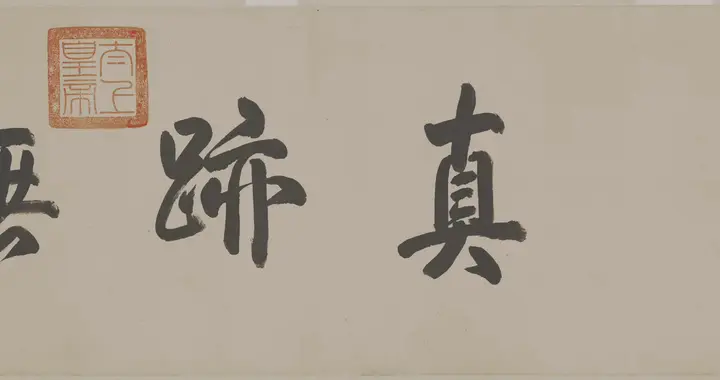 真跡
太上皇帝